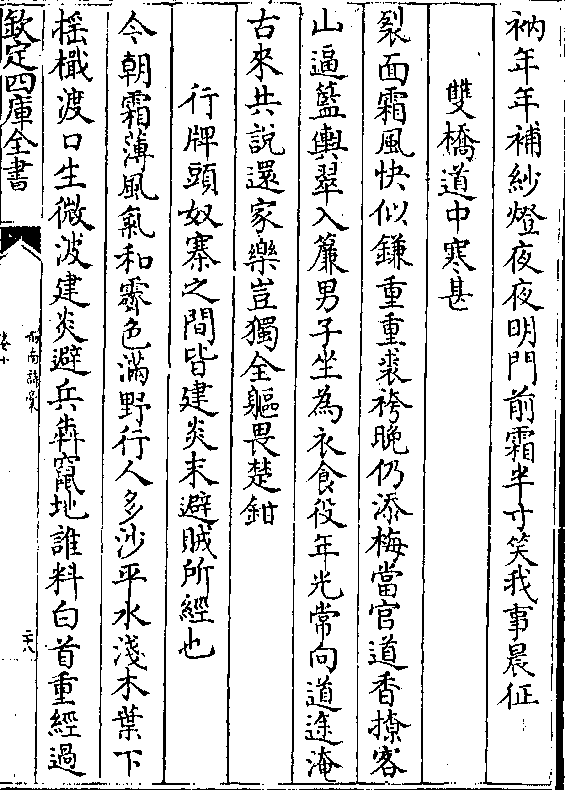 衲年年補紗燈夜夜明門前霜半寸笑我事晨征
雙橋道中寒甚
裂面霜風快似鎌重重裘袴晚仍添梅當官道香撩客
山逼籃輿翠入簾男子坐為衣食役年光常向道途淹
古來共說還家樂豈獨全軀畏楚鉗
行牌頭奴寨之間皆建炎末避賊所經也
今朝霜薄風氣和霽色滿野行人多沙平水淺木葉下
揺檝渡口生微波建炎避兵犇竄地誰料白首重經過
欽定四庫全書
劍南詩稾
卷十
二八